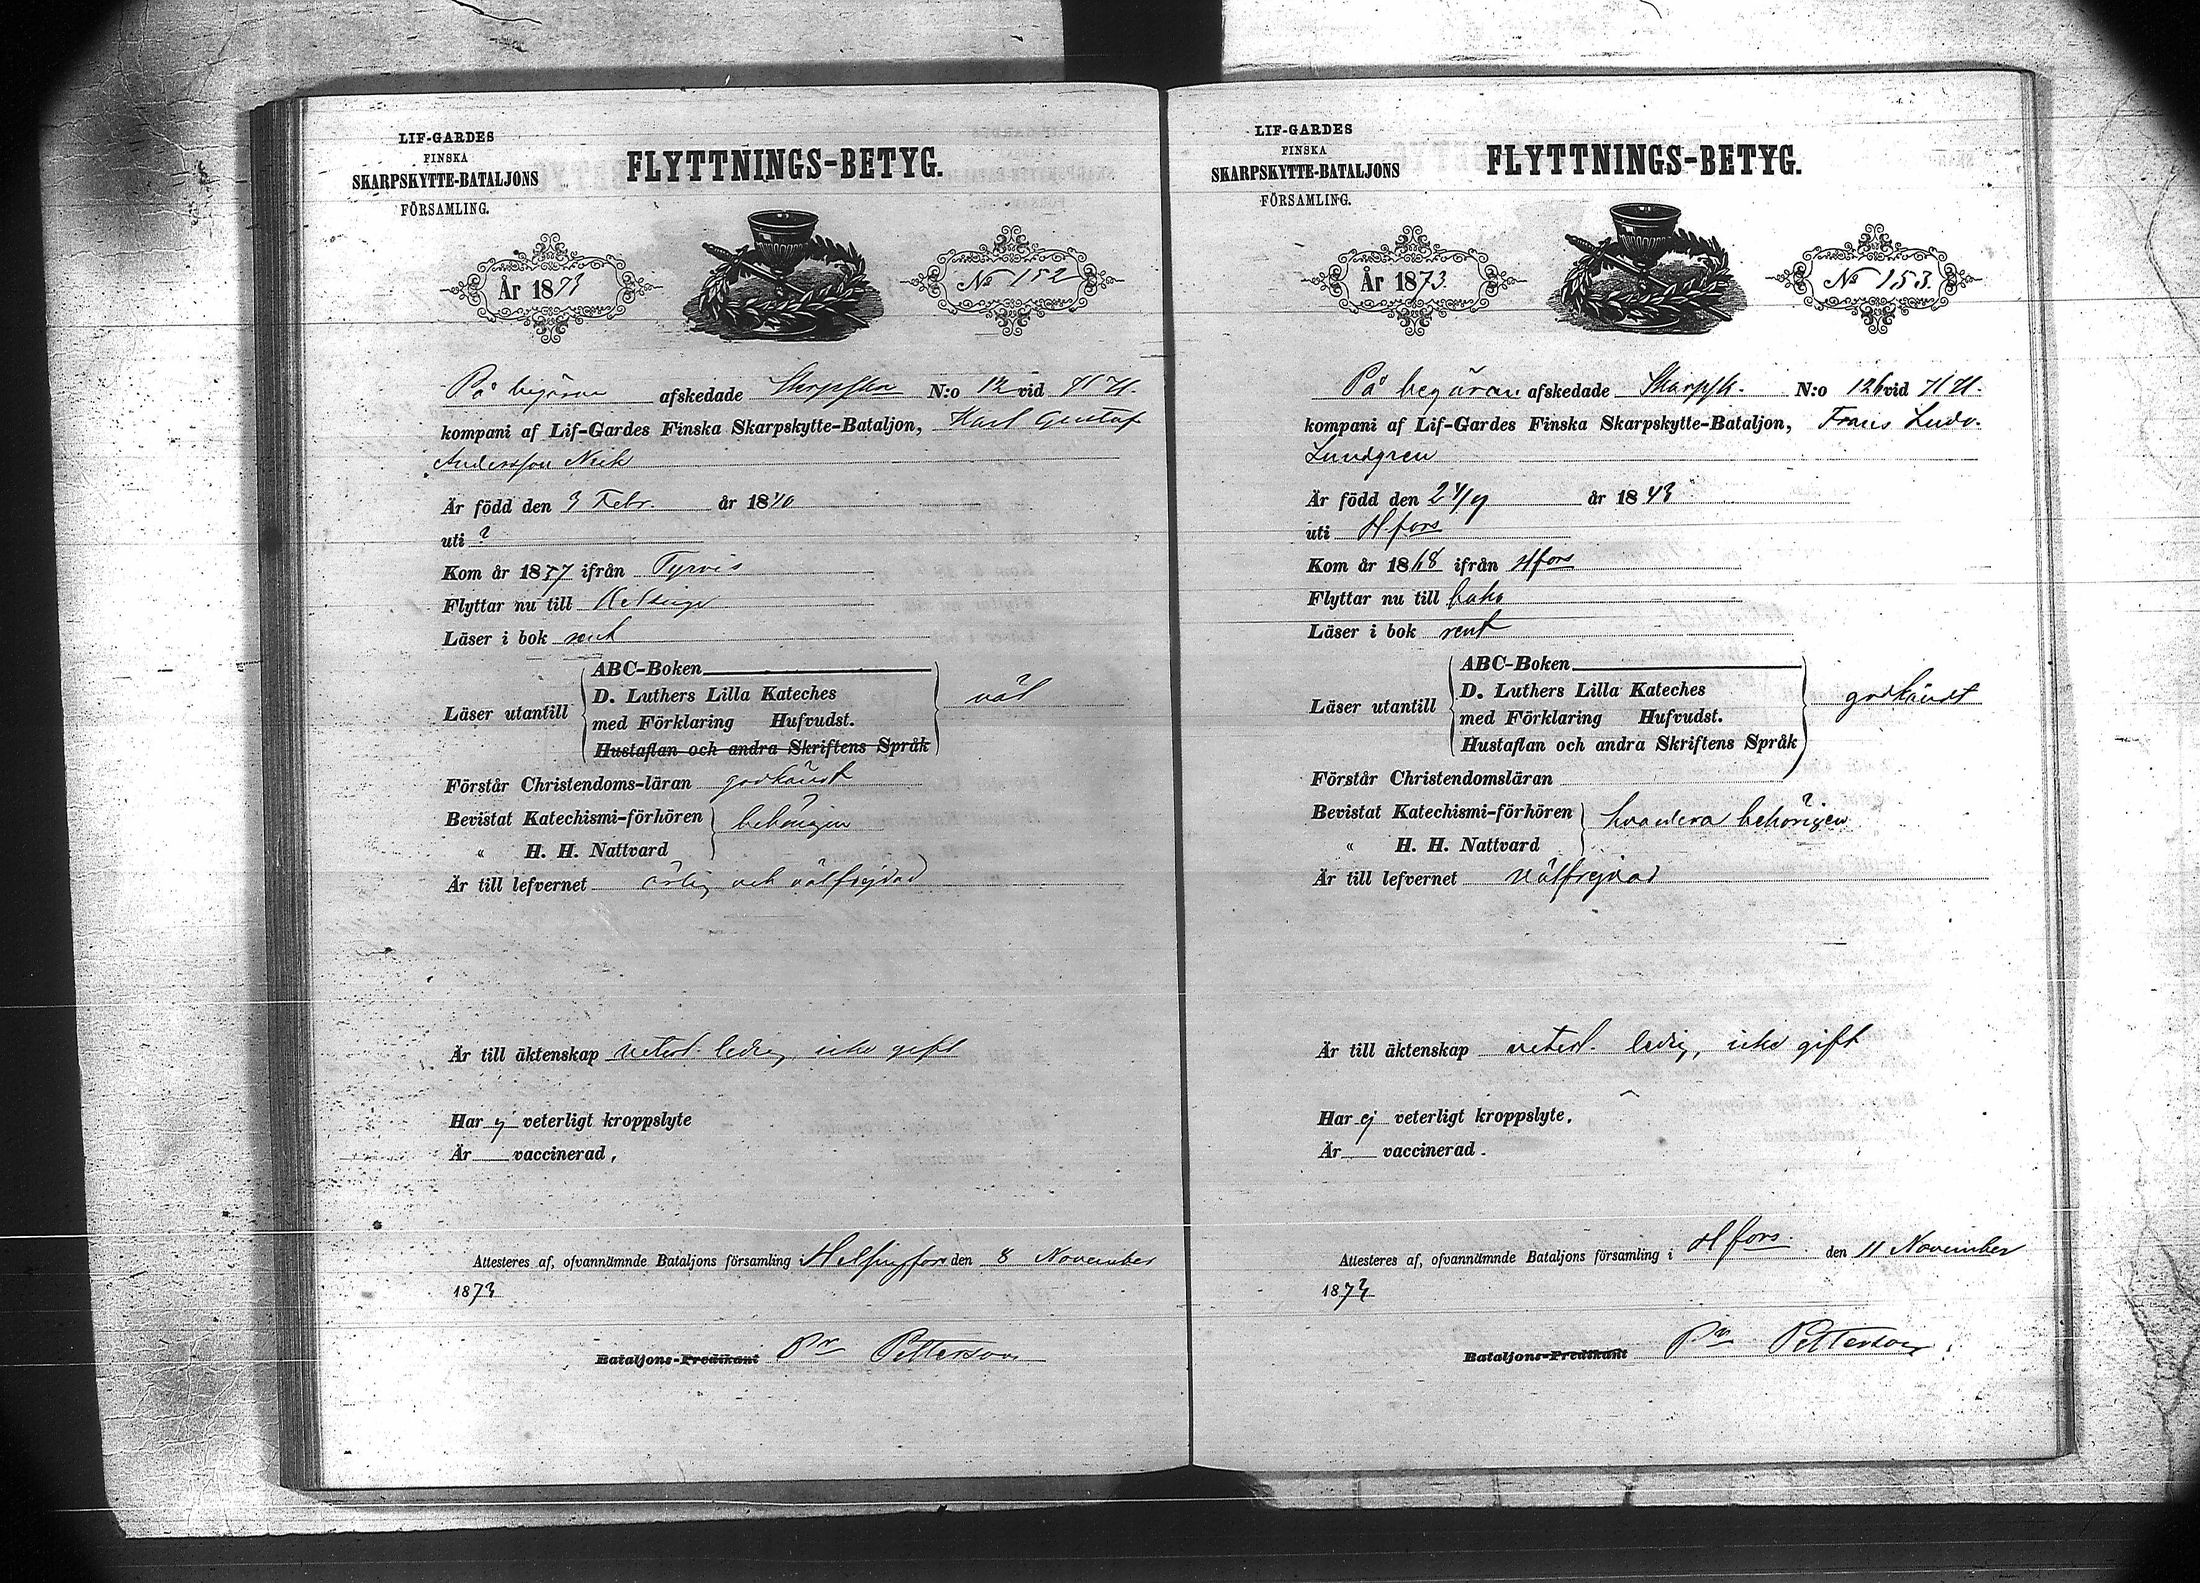 LIF-GARDES
FINSKA
SKARPSKYTTE-BATALJONS
FÖRSAMLING.
FLYTTNINGS-BETYG.
År 1873
No 152
På begäran afskedade N:o 12 vid
kompani af Lif-Gardes Finska Skarpskytte-Bataljon, Karl Gustaf
Andersson
Är född den 3 Febr. år 1840
uti ?
Kom år 1857 ifrån Tyrvis
Flyttar nu till
Läser i bok rent
ABC-Boken
D. Luthers Lilla Kateches
Läser utantill väl
med Förklaring Hufvudst.
Hustaflan och andra Skriftens Språk
Förstår Christendoms-läran godkändt
Bevistat Katechismi-förhören behörigen
" H. H. Nattvard
Är till lefvernet ärlig och välfrejdad
Är till äktenskap veterl. ledig, icke gift
Har ej veterligt kroppslyte
Är vaccinerad,
Attesteres af, ofvannämnde Bataljons församling i Helsingfors den 8 November
1873
Bataljons-Predikant Petterson
LIF-GARDES
FINSKA
SKARPSKYTTE-BATALJONS
FÖRSAMLING.
FLYTTNINGS-BETYG.
År 1873.
No 153.
På begäran afskedade Skarpsk. N:o 126 vid
kompani af Lif-Gardes Finska Skarpskytte-Bataljon, Frans Ludv.
Lundgren
Är född den 24/9 år 1843
uti H.fors
Kom år 1868 ifrån Hfors
Flyttar nu till
Läser i bok rent
ABC-Boken
D. Luthers Lilla Kateches
Läser utantill godkändt
med Förklaring Hufvudst.
Hustaflan och andra Skriftens Språk
Förstår Christendomsläran
Bevistat Katechismi-förhören hvardera behörigen
" H. H. Nattvard
Är till lefvernet välfrejdad
Är till äktenskap veterl. ledig, icke gift
Har ej veterligt kroppslyte.
Är vaccinerad.
Attesteres af, ofvannämnde Bataljons församling i Hfors. den 11 November
1873
Bataljons-Predikant Petterson